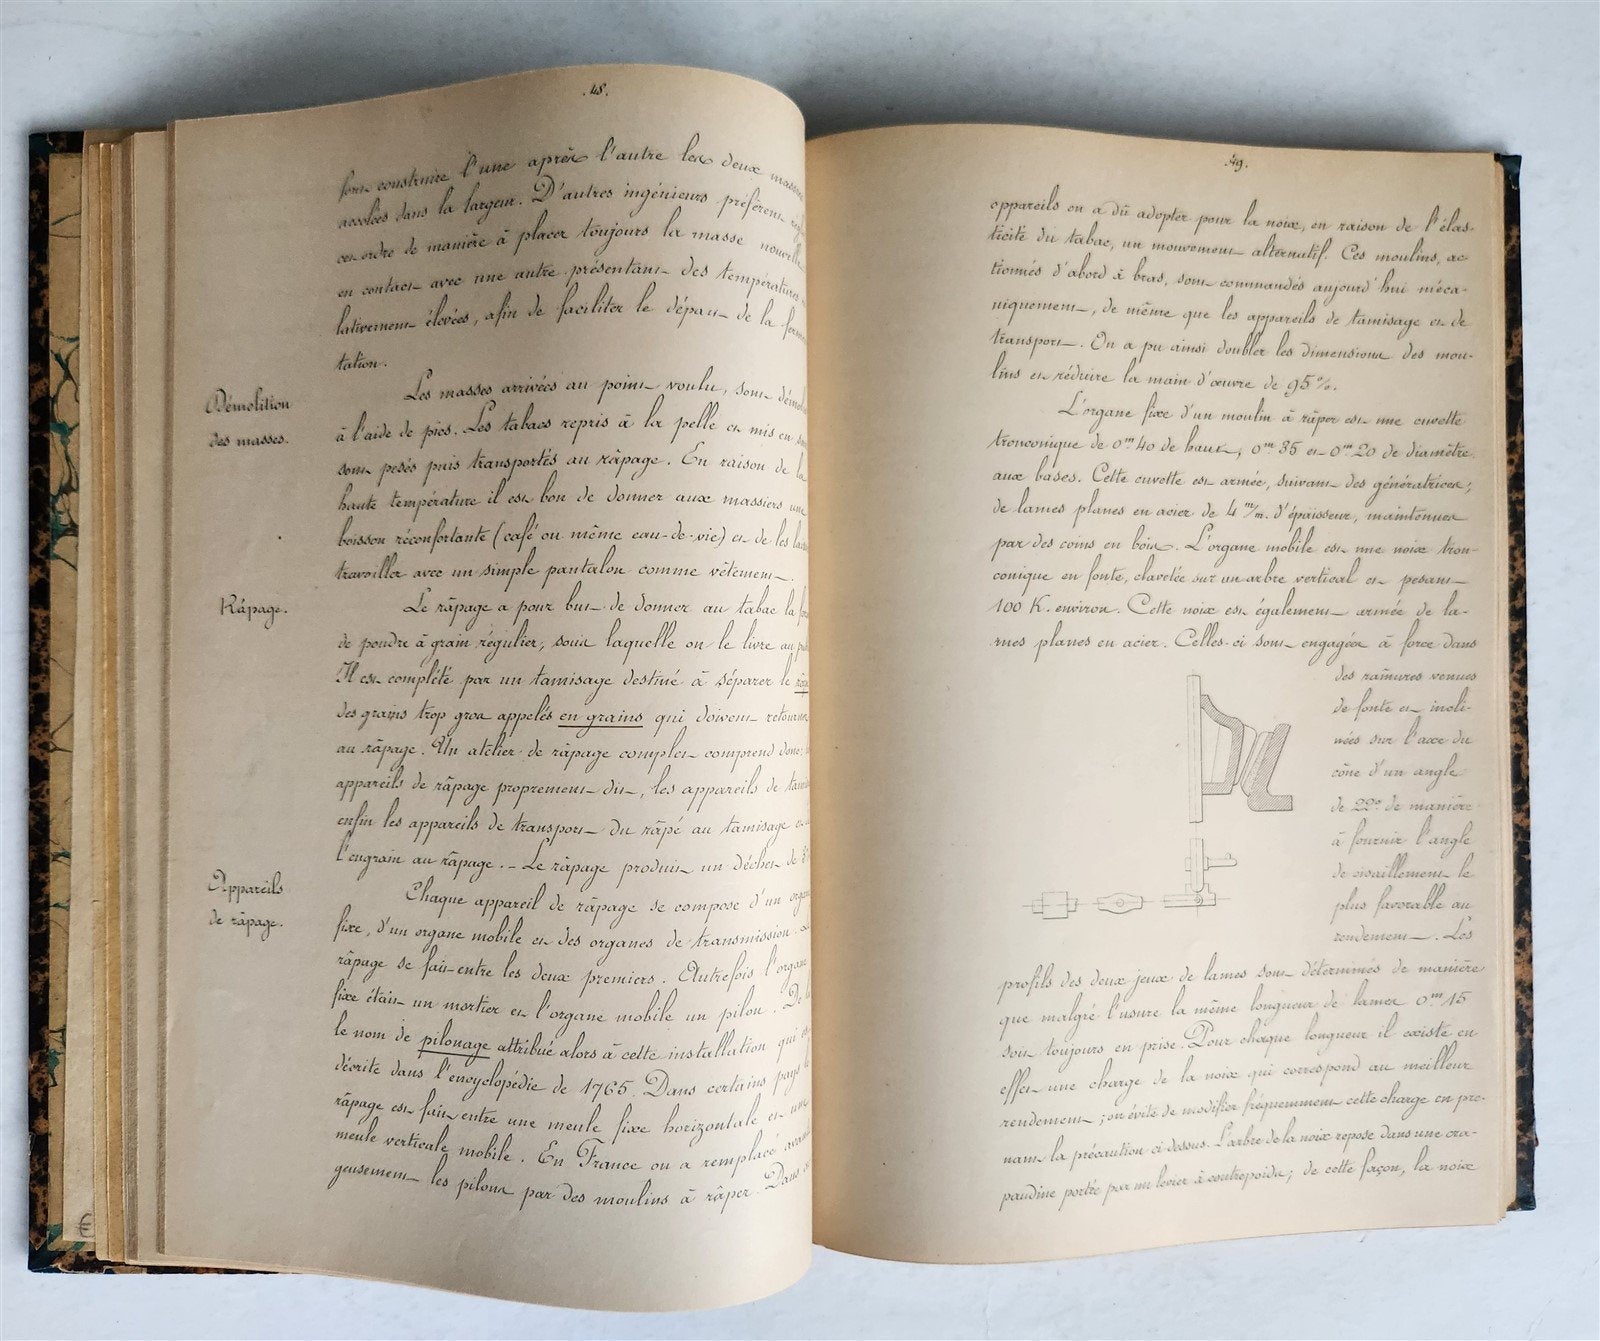 .48.
font construire l'une après l'autre les deux masses
accolées dans la largeur. D'autres ingénieurs préfèrent
cet ordre de manière à placer toujours la masse nouvelle
en contact avec une autre présentant des températures
lativement élevées, afin de faciliter le départ de la fermen
tation.
Démolition
des masses.
Les masses arrivées au point voulu, sont démol
à l'aide de pics. Les tabacs repris à la pelle et mis en
sont pesés puis transportés au râpage. En raison de la
haute température il est bon de donner aux massiers une
boisson réconfortante (café ou même eau-de-vie) et de les
travailler avec un simple pantalon comme vêtement.
Râpage.
Le râpage a pour but de donner au tabac la
de poudre à grain régulier, sous laquelle on le livre au
Il est complété par un tamisage destiné à séparer le
des grains trop gros appelés en grains qui doivent retourner
au râpage. Un atelier de râpage complet comprend donc:
appareils de râpage proprement dit, les appareils de
enfin les appareils de transport du râpé au tamisage et
l'engrain au râpage. – Le râpage produit un déchet de
Appareils
de râpage.
Chaque appareil de râpage se compose d'un organe
fixe, d'un organe mobile et des organes de transmission.
râpage se fait entre les deux premiers. Autrefois l'organe
fixe était un mortier et l'organe mobile un pilon. De
le nom de pilonage attribué alors à cette installation qui
décrite dans l'encyclopédie de 1765. Dans certains pays le
râpage est fait entre une meule fixe horizontale et une
meule verticale mobile. En France on a remplacé avanta
geusement les pilons par des moulins à râper. Dans
.49.
appareils on a dû adopter pour la noix, en raison de l'élas-
ticité du tabac, un mouvement alternatif. Ces moulins, ac-
tionnés d'abord à bras, sont commandés aujourd'hui méca-
niquement, de même que les appareils de tamisage et de
transport. On a pu ainsi doubler les dimensions des mou-
lins et réduire la main d'œuvre de 95%.
L'organe fixe d'un moulin à râper est une cuvette
tronconique de 0m40 de haut, 0m35 et 0m20 de diamètre
aux bases. Cette cuvette est armée, suivant des génératrices,
de lames planes en acier de 4 m/m. d'épaisseur, maintenues
par des coins en bois. L'organe mobile est une noix tron-
conique en fonte, clavetée sur un arbre vertical et pesant
100 K. environ. Cette noix est également armée de la-
mes planes en acier. Celles-ci sont engagées à force dans
des rainures venues
de fonte et incli-
nées sur l'axe du
cône d'un angle
de 22° de manière
à fournir l'angle
de cisaillement le
plus favorable au
rendement. Les
profils des deux jeux de lames sont déterminés de manière
que malgré l'usure la même longueur de lames 0m15
soit toujours en prise. Pour chaque longueur il existe en
effet une charge de la noix qui correspond au meilleur
rendement; on évite de modifier fréquemment cette charge en pre-
nant la précaution ci-dessus. L'arbre de la noix repose dans une cra-
paudine portée par un levier à contrepoids; de cette façon, la noix
€